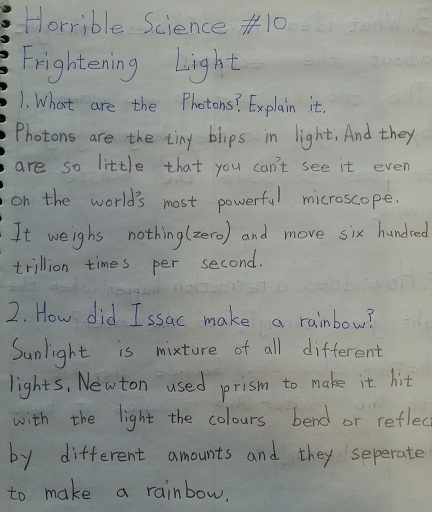 Horrible Science #10
Frightening Light
1. What are the Photons? Explain it.
Photons are the tiny blips in light. And they
are so little that you can't see it even
on the world's most powerful microscope.
It weighs nothing(zero) and move six hundred
trillion times per second.
2. How did Issac make a rainbow?
Sunlight is mixture of all different
lights. Newton used prism to make it hit
with the light the colours bend or reflec
by different amounts and they seperate
to make a rainbow.